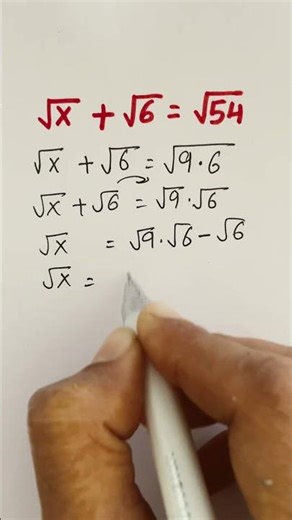 √x + √6 = √54
√x + √6 = √9·6
√x + √6 = √9·√6
√x = √9·√6 - √6
√x =